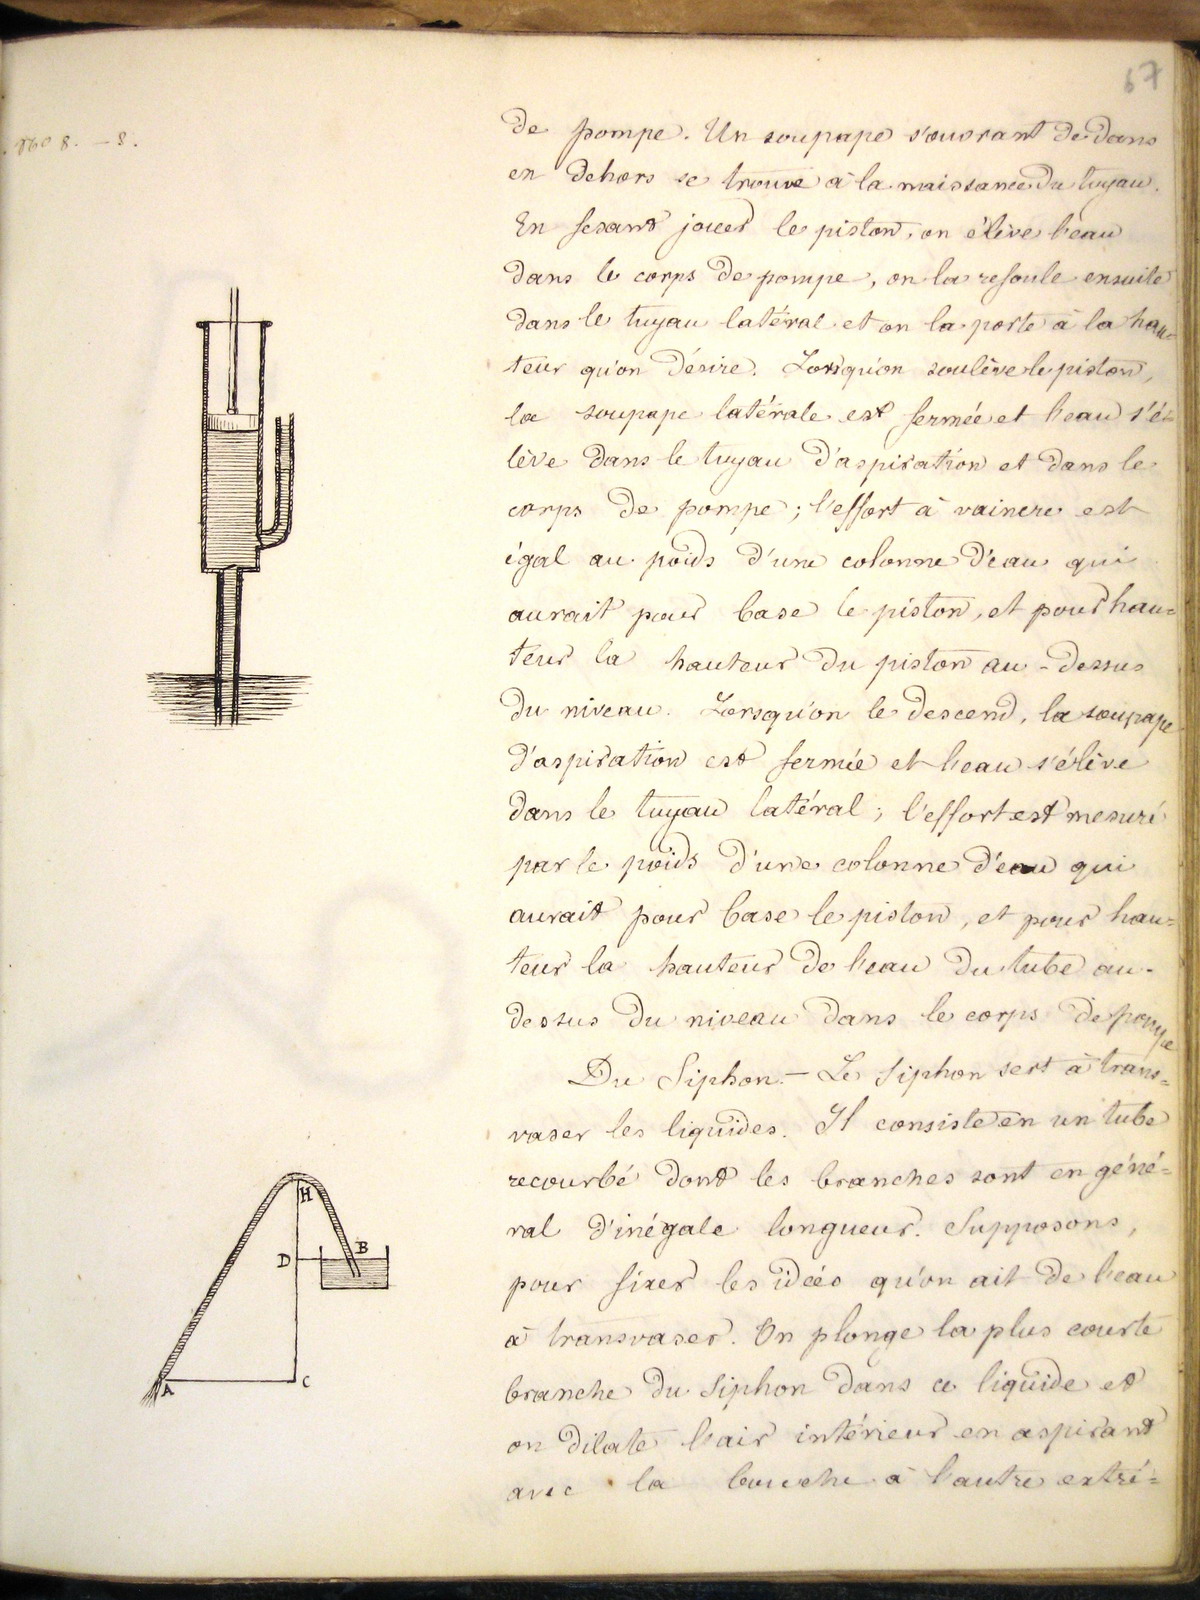 67
8. - 8.
de pompe. Un soupape s'ouvrant de dans
en dehors se trouve à la naissance du tuyau.
En fesant jouer le piston, on élève l'eau
dans le corps de pompe, on la refoule ensuite
dans le tuyau latéral et on la porte à la hau=
teur qu'on désire. Lorsqu'on soulève le piston,
la soupape latérale est fermée et l'eau s'é-
lève dans le tuyau d'aspiration et dans le
corps de pompe ; l'effort à vaincre est
égal au poids d'une colonne d'eau qui
aurait pour base le piston, et pour hau=
teur la hauteur du piston au-dessus
du niveau. Lorsqu'on le descend, la soupape
d'aspiration est fermée et l'eau s'élève
dans le tuyau latéral ; l'effort est mesuré
par le poids d'une colonne d'eau qui
aurait pour base le piston, et pour hau=
teur la hauteur de l'eau du tube au-
dessus du niveau dans le corps de pompe
Du Siphon. — Le Siphon sert à trans=
vaser les liquides. Il consiste en un tube
recourbé dont les branches sont en géné=
ral d'inégale longueur. Supposons,
pour fixer les idées qu'on ait de l'eau
à transvaser. On plonge la plus courte
branche du Siphon dans ce liquide et
on dilate l'air intérieur en aspirant
avec la bouche à l'autre extré=
H
D
B
A
C